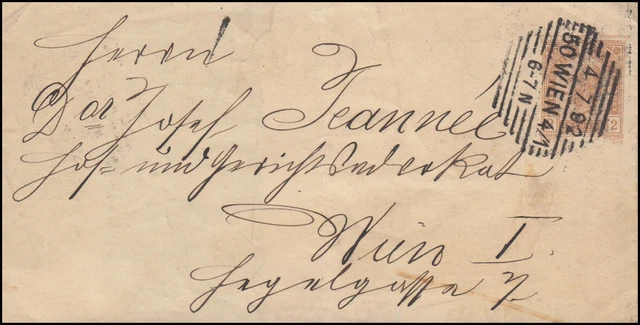 Herrn
Dor Josef Jeannée
Hof- und Gerichtsadvokat
Wien I.
Hegelgasse 7.
50 WIEN 4/1
4 7 92
6-7 N
2